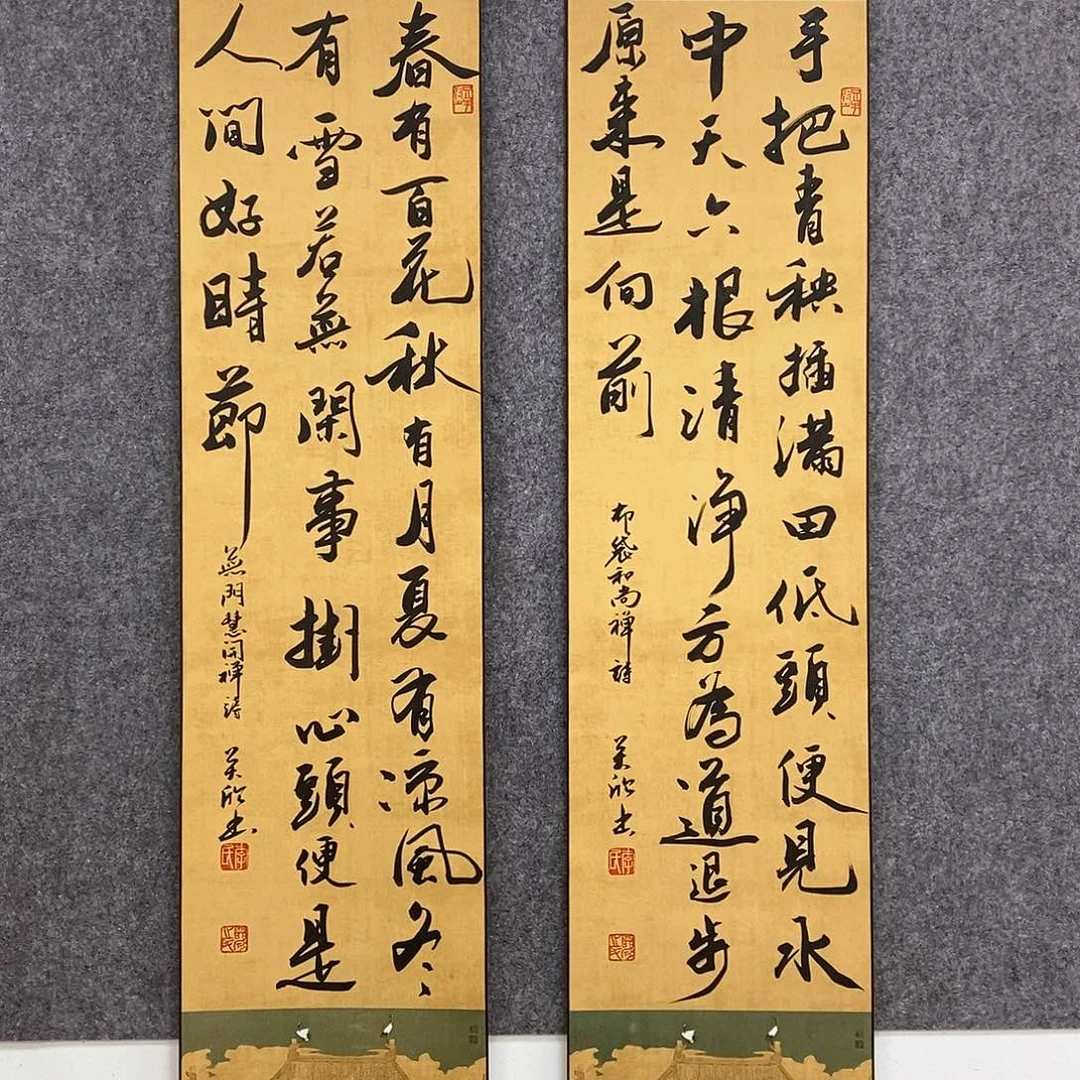 手把青秧插滿田低頭便見水
中天六根清淨方為道退步
原来是向前
布袋和尚禅詩
書
李氏
春有百花秋有月夏有涼風冬
有雪若無閑事掛心頭便是
人間好時節
無門慧開禅詩
書
李氏